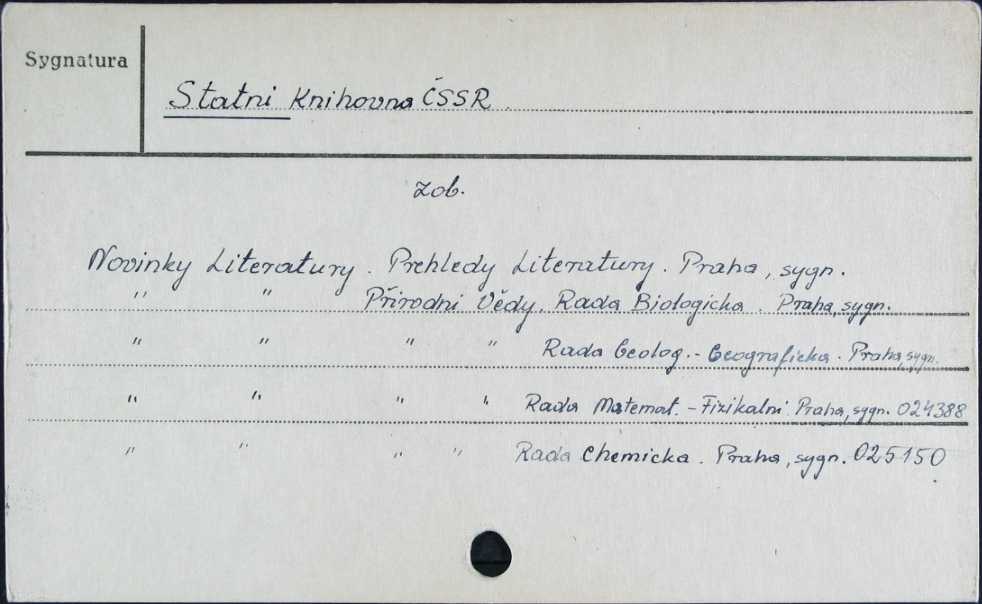 Sygnatura
Statni Knihovna ČSSR
zob.
Novinky Literatury. Prehledy Literatury. Praha, sygn.
" " Přirodni Vědy. Rada Biologicka. Praha, sygn.
" " " " Rada Geolog.-Geograficka. Praha, sygn.
" " " " Rada Matemat.-Fizikalni Praha, sygn. 024388
" " " " Rada Chemicka. Praha, sygn. 025150